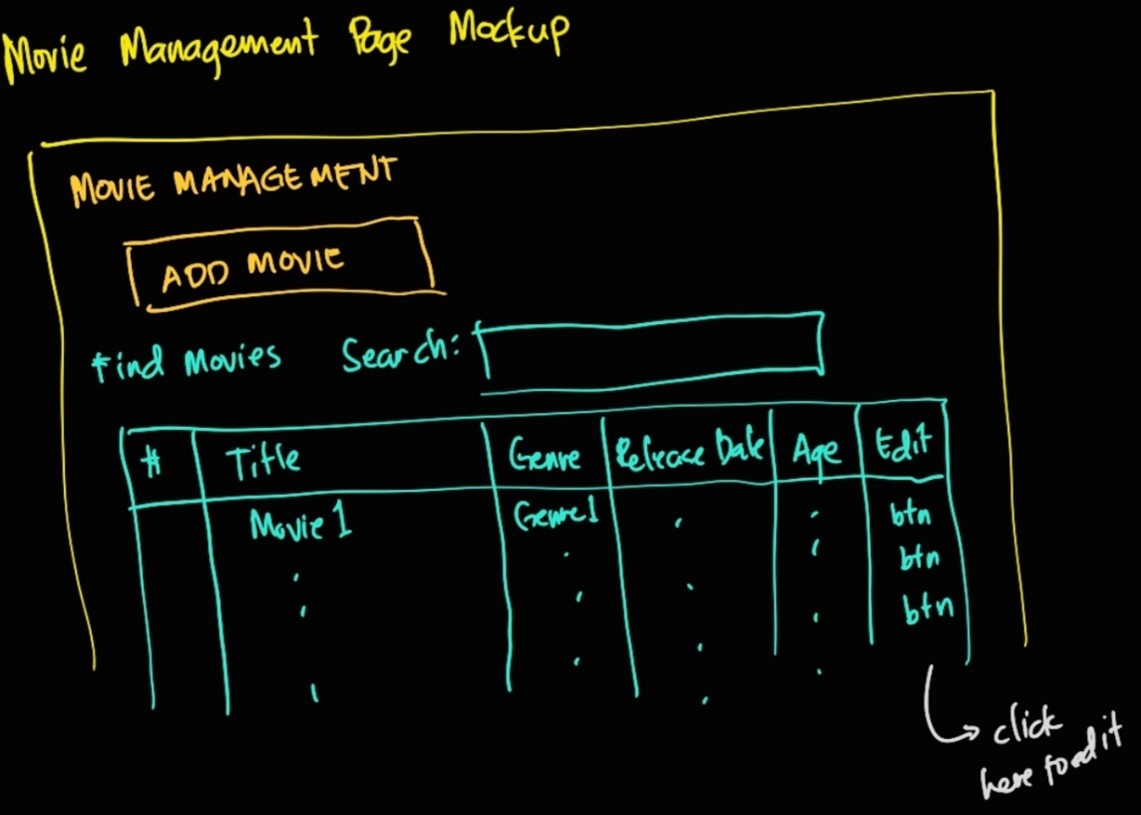 Movie Management Page Mockup
MOVIE MANAGEMENT
ADD MOVIE
Find Movies Search:
# Title Genre Release Date Age Edit
Movie 1 Genre1 btn
btn
btn
click
here to edit